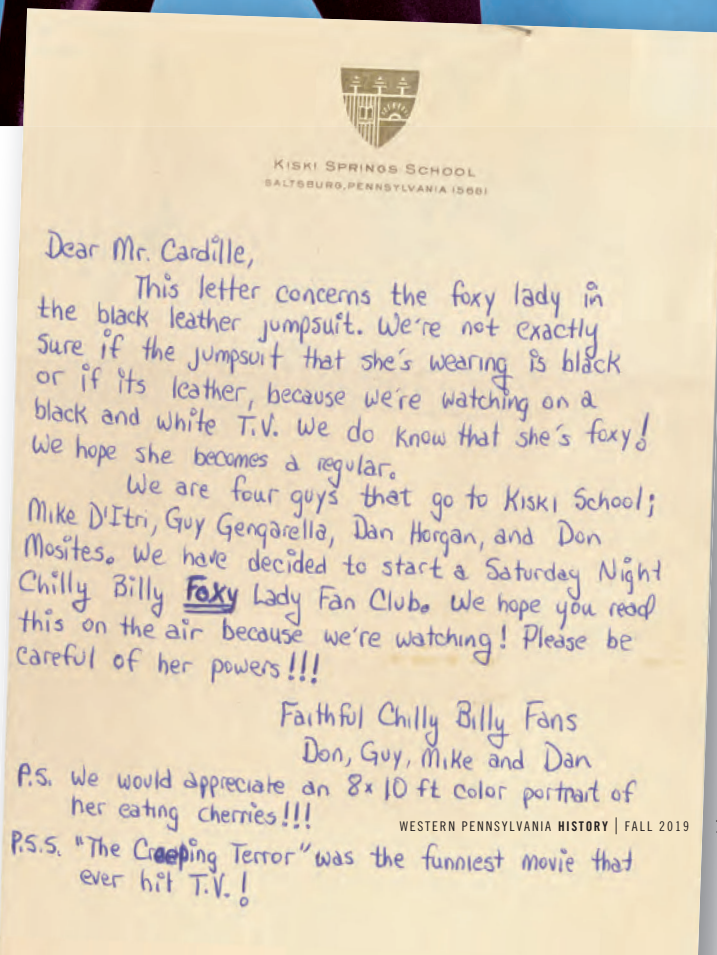 KISKI SPRINGS SCHOOL
SALTSBURG, PENNSYLVANIA 15681
Dear Mr. Cardille,
This letter concerns the foxy lady in
the black leather jumpsuit. We're not exactly
sure if the jumpsuit that she's wearing is black
or if its leather, because we're watching on a
black and white T.V. We do know that she's foxy!
We hope she becomes a regular.
We are four guys that go to Kiski School;
Mike D'Itri, Guy Gengarella, Dan Horgan, and Don
Mosites. We have decided to start a Saturday Night
Chilly Billy Foxy Lady Fan Club. We hope you read
this on the air because we're watching! Please be
careful of her powers!!!
Faithful Chilly Billy Fans
Don, Guy, Mike and Dan
P.S. We would appreciate an 8x10 ft color portrait of
her eating cherries!!!
WESTERN PENNSYLVANIA HISTORY | FALL 2019
P.S.S. "The Creeping Terror" was the funniest movie that
ever hit T.V.!